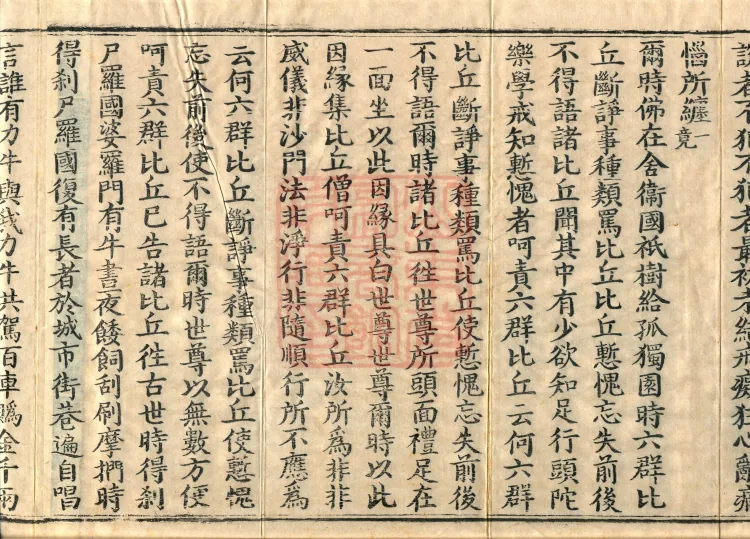 説者不犯不犯者最初未結戒癡狂心亂痛
惱所纏一竟
爾時佛在舍衛國祇樹給孤獨園時六群比
丘斷諍事種類罵比丘比丘慙愧忘失前後
不得語諸比丘聞其中有少欲知足行頭陀
樂學戒知慙愧者呵責六群比丘云何六群
比丘斷諍事種類罵比丘使慙愧忘失前後
不得語爾時諸比丘徃世尊所頭面禮足在
一面坐以此因緣具白世尊世尊爾時以此
因緣集比丘僧呵責六群比丘汝所爲非非
威儀非沙門法非淨行非隨順行所不應爲
云何六群比丘斷諍事種類罵比丘使慙愧
忘失前後使不得語爾時世尊以無數方便
呵責六群比丘已告諸比丘徃古世時得刹
尸羅國婆羅門有牛晝夜餧飼刮刷摩捫時
得刹尸羅國復有長者於城市街巷遍自唱
言誰有力牛與我力牛共駕百車賭金千兩